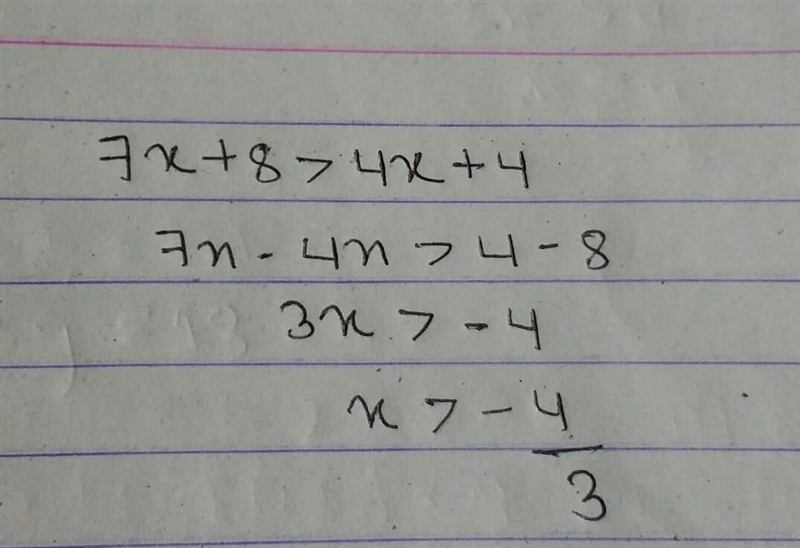 7x + 8 > 4x + 4
7x - 4x > 4 - 8
3x > - 4
x > - 4/3